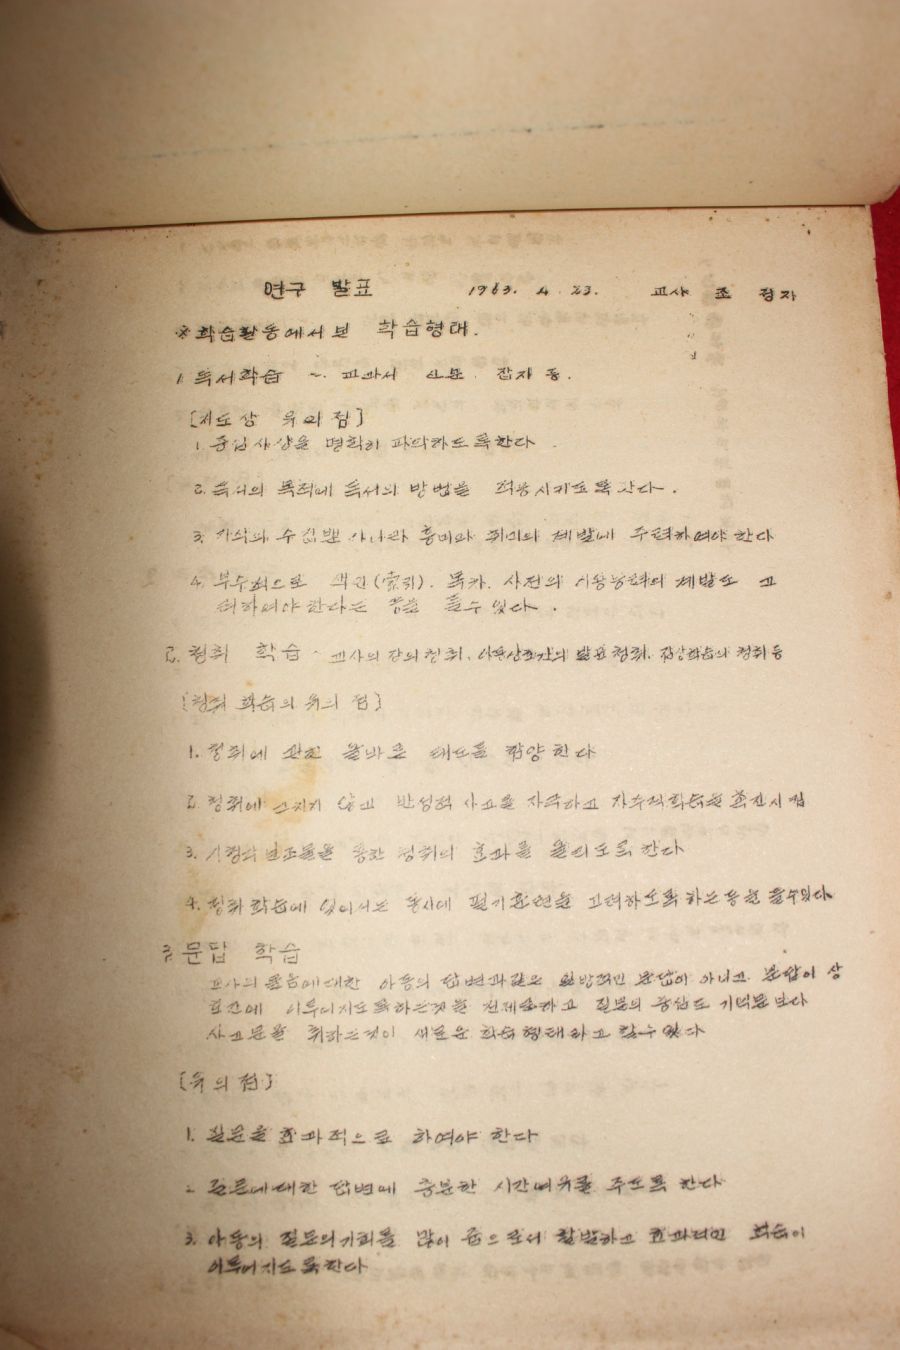 연구 발표 1963. 4. 23. 교사 조 정자
※ 학습활동에서 본 학습형태.
1. 독서학습 ~ 교과서 신문 잡지 등.
[지도상 유의 점]
1. 중심사상을 명확히 파악하도록한다.
2. 독서의 목적에 독서의 방법을 적응시키도록 한다.
3. 지식의 수집뿐 아니라 흥미와 취미의 계발에 주력하여야 한다
4. 부수적으로 색인(索引). 목차. 사전의 이용능력의 계발도 고
려하여야 한다는 등을 들수 있다.
2. 청취 학습 · 교사의 강의청취. 발표청취. 청취 등
[청취 학습의 유의 점]
1. 청취에 관한 올바른 태도를 함양 한다
2. 청취에 그치지 않고 반성적 사고를 자극하고 학습을 촉진시킴
3. 통한 청취의 효과를 올리도록 한다
4. 청취학습에 있어서는 동시에 필기훈련을 고려하도록 하는등을 들수있다.
3. 문답 학습
교사의 물음에대한 아동의 답변과같은 일방적인 문답이 아니고 문답이 상
호간에 이루어지도록하는것을 전제로하고 질문의 중심도 기억문보다
사고문을 취하는것이 새로운 학습형태라고 할수 있다
[유의점]
1. 질문을 효과적으로 하여야 한다
2. 질문에대한 답변에 충분한 시간여유를 주도록 한다
3. 아동의 질문의기회를 많이 줌으로서 활발하고 효과적인 학습이
이루어지도록한다